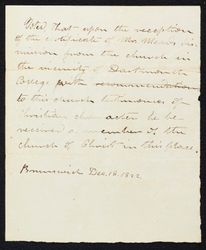 Voted that upon the reception
of the certificate of Mr. dis-
mission from the church in
the vicinity of Dartmouth
College with recommendation
to this church testimonies of
Christian character he be
received a member of the
church of Christ in this place.
Brunswick Dec. 18. 1822